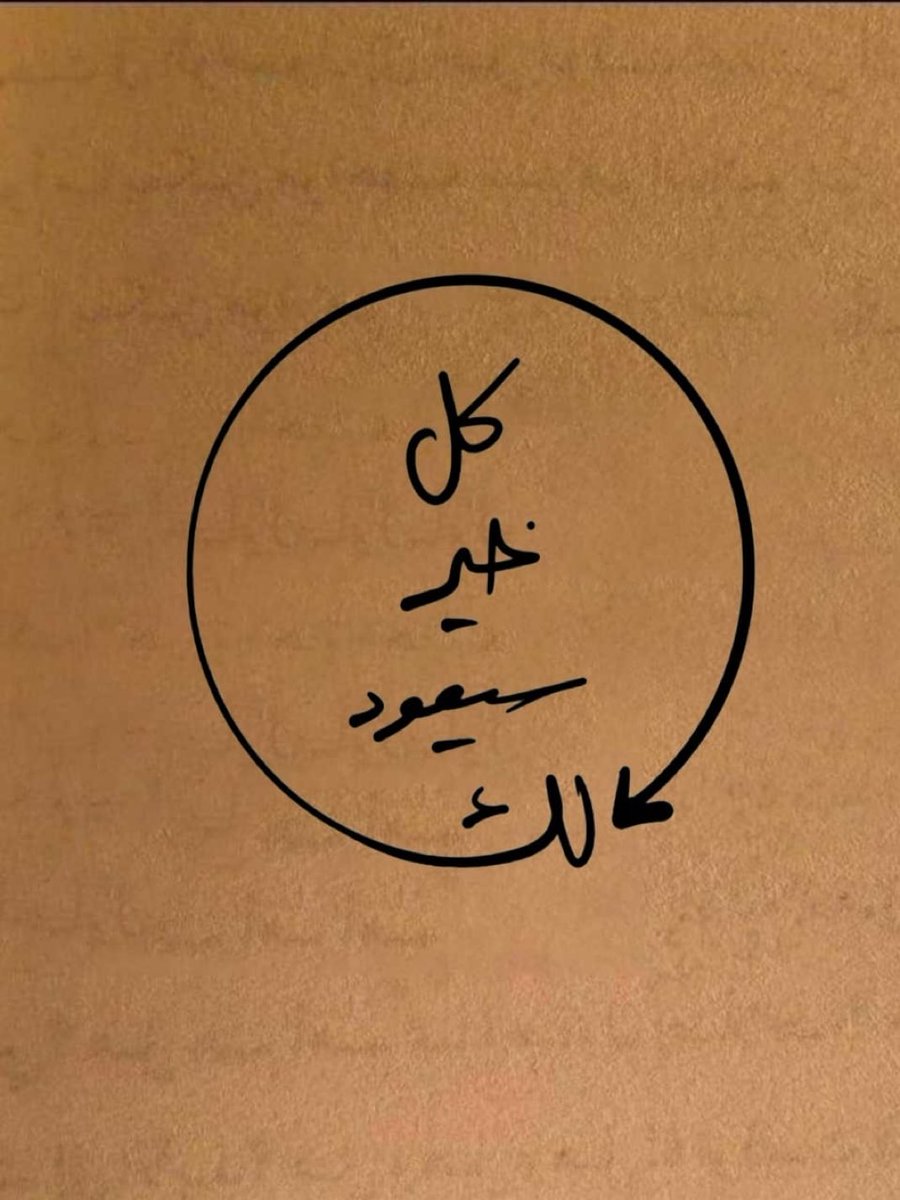 كل
خير
سيعود
لك